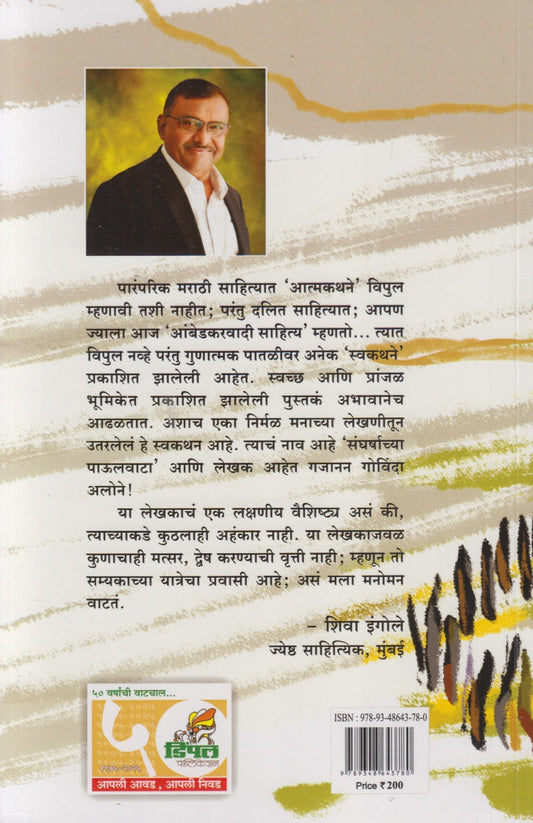 पारंपरिक मराठी साहित्यात ‘आत्मकथने’ विपुल
म्हणावी तशी नाहीत; परंतु दलित साहित्यात; आपण
ज्याला आज ‘आंबेडकरवादी साहित्य’ म्हणतो... त्यात
विपुल नव्हे परंतु गुणात्मक पातळीवर अनेक ‘स्वकथने’
प्रकाशित झालेली आहेत. स्वच्छ आणि प्रांजळ
भूमिकेत प्रकाशित झालेली पुस्तकं अभावानेच
आढळतात. अशाच एका निर्मळ मनाच्या लेखणीतून
उतरलेलं हे स्वकथन आहे. त्याचं नाव आहे ‘संघर्षाच्या
पाऊलवाटा’ आणि लेखक आहेत गजानन गोविंदा
अलोने!
या लेखकाचं एक लक्षणीय वैशिष्ट्य असं की,
त्याच्याकडे कुठलाही अहंकार नाही. या लेखकाजवळ
कुणाचाही मत्सर, द्वेष करण्याची वृत्ती नाही; म्हणून तो
सम्यकाच्या यात्रेचा प्रवासी आहे; असं मला मनोमन
वाटतं.
– शिवा इंगोले
ज्येष्ठ साहित्यिक, मुंबई
५० वर्षांची वाटचाल...
५०
डिंपल
पब्लिकेशन
आपली आवड, आपली निवड
ISBN : 978-93-48643-78-0
9 789348 643780
Price ₹ 200